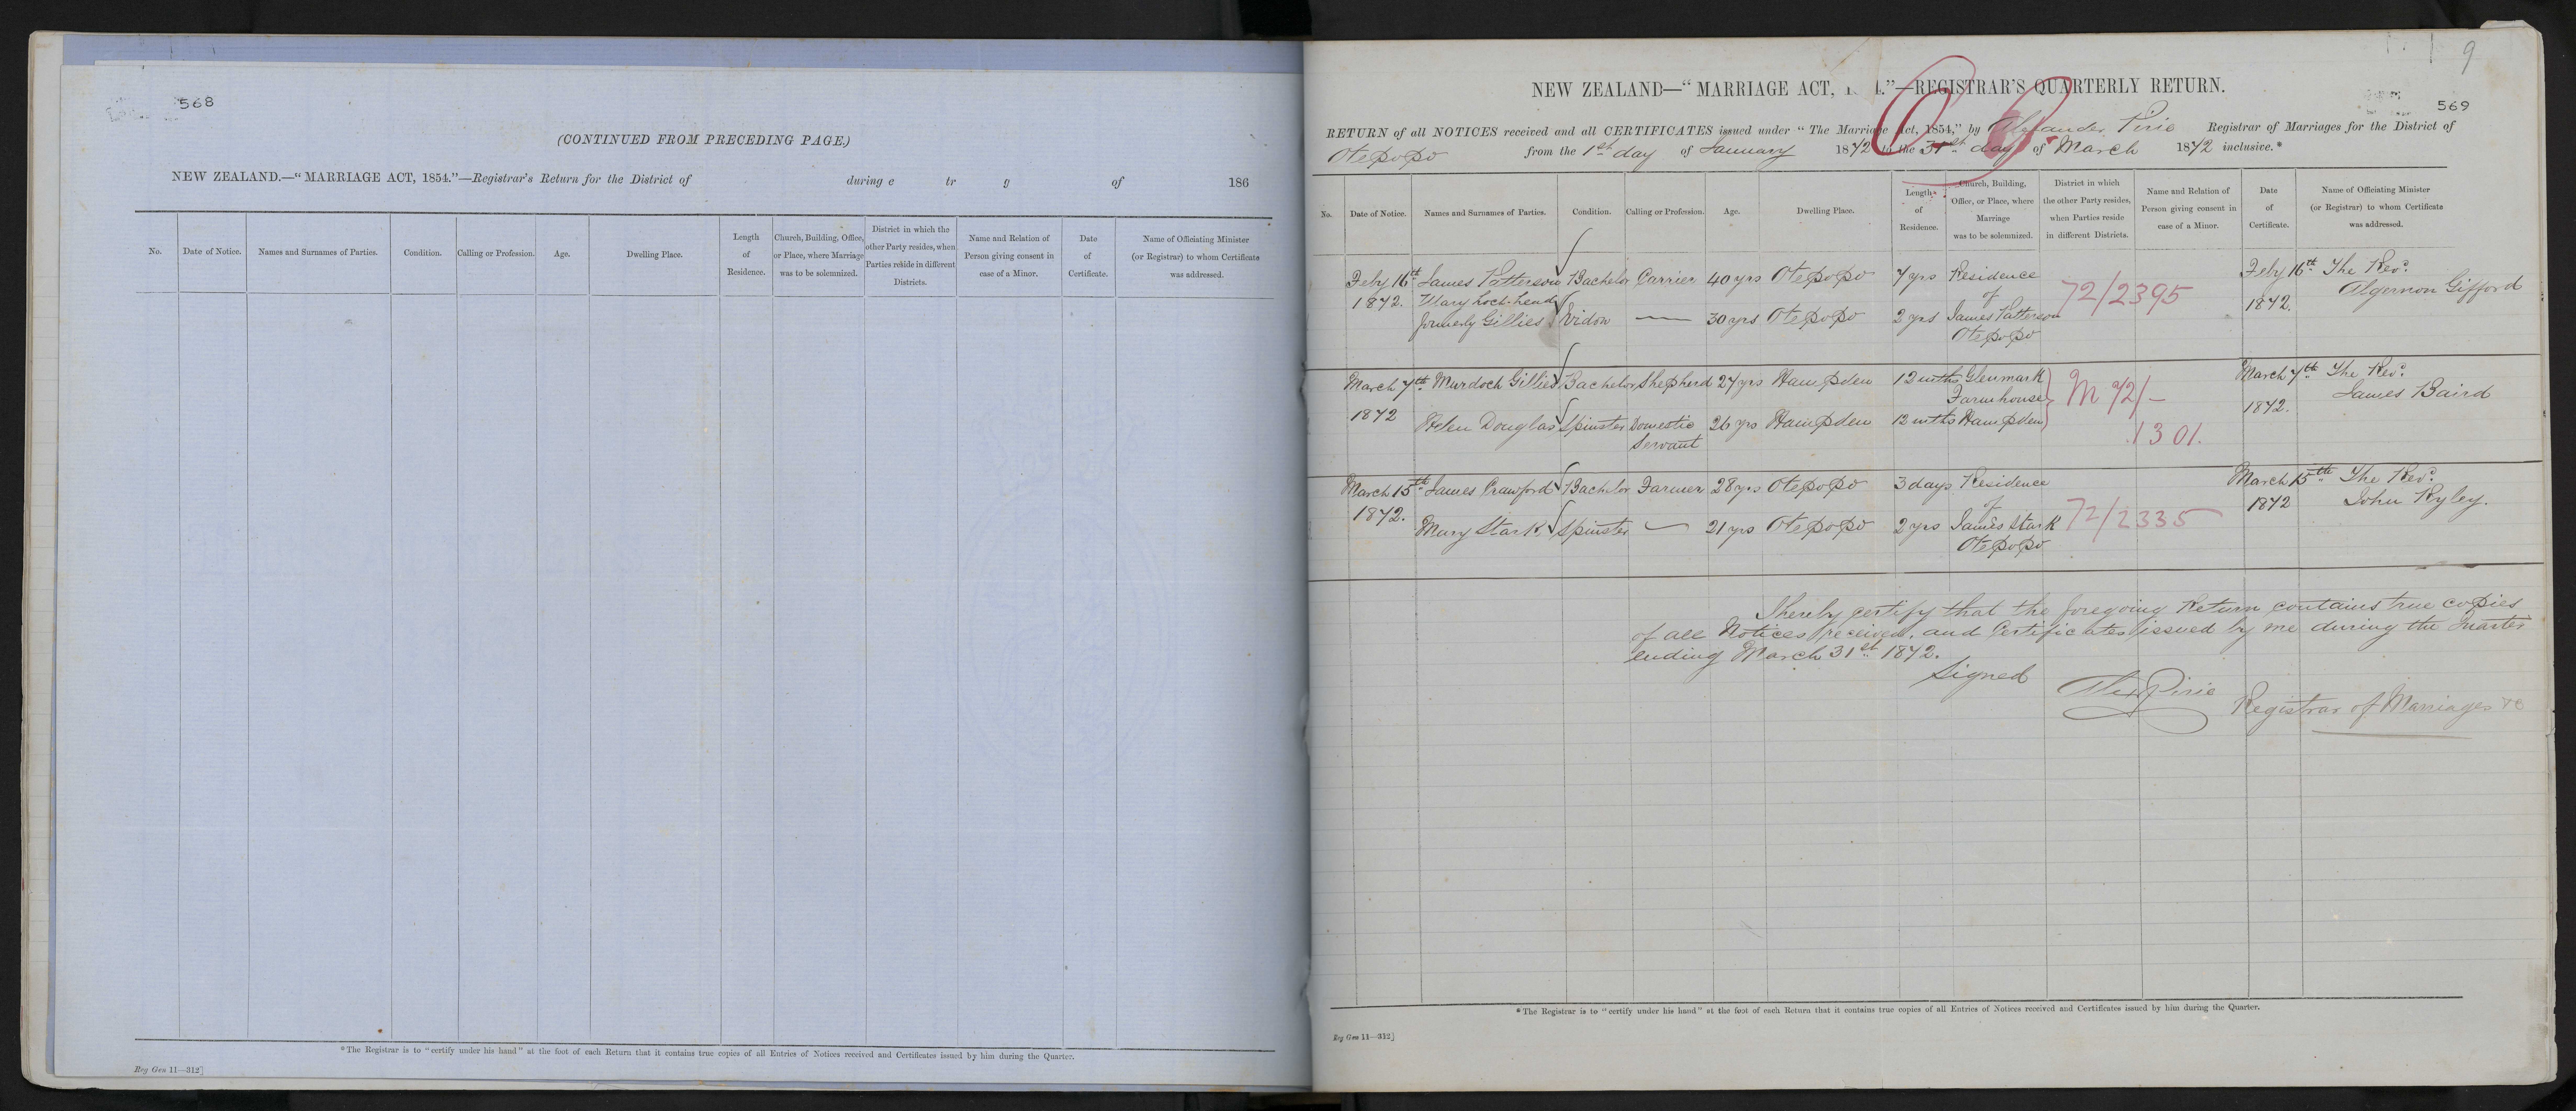 568
(CONTINUED FROM PRECEDING PAGE.)
NEW ZEALAND.—"MARRIAGE ACT, 1854."—Registrar's Return for the District of during e tr g of 186
No. Date of Notice. Names and Surnames of Parties. Condition. Calling or Profession. Age. Dwelling Place. Length of Residence. Church, Building, Office, or Place, where Marriage was to be solemnized. District in which the other Party resides, when Parties reside in different Districts. Name and Relation of Person giving consent in case of a Minor. Date of Certificate. Name of Officiating Minister (or Registrar) to whom Certificate was addressed.
*The Registrar is to "certify under his hand" at the foot of each Return that it contains true copies of all Entries of Notices received and Certificates issued by him during the Quarter.
Reg Gen 11—312]
9
NEW ZEALAND—"MARRIAGE ACT, 1 4."—REGISTRAR'S QUARTERLY RETURN.
569
RETURN of all NOTICES received and all CERTIFICATES issued under "The Marriage Act, 1854," by Alexander Pirie Registrar of Marriages for the District of
Otepopo from the 1st day of January 1872 to the 31st day of March 1872 inclusive.*
No. Date of Notice. Names and Surnames of Parties. Condition. Calling or Profession. Age. Dwelling Place. Length of Residence. Church, Building, Office, or Place, where Marriage was to be solemnized. District in which the other Party resides, when Parties reside in different Districts. Name and Relation of Person giving consent in case of a Minor. Date of Certificate. Name of Officiating Minister (or Registrar) to whom Certificate was addressed.
Feby 16th James Patterson Bachelor Carrier 40 yrs Otepopo 7 yrs Residence Feby 16th The Revd.
1872. Mary Loch-head of 72/2395 1872. Algernon Gifford
formerly Gillies Widow — 30 yrs Otepopo 2 yrs James Patterson
Otepopo
March 7th Murdoch Gillies Bachelor Shepherd 27 yrs Hampden 12 mths Glenmark M 72/— March 7th The Revd.
Farmhouse James Baird
1872 Helen Douglas Spinster Domestic 26 yrs Hampden 12 mths Hampden 1301. 1872.
Servant
March 15th James Crawford Bachelor Farmer 28 yrs Otepopo 3 days Residence March 15th The Revd.
1872. of 1872 John Ryley.
Mary Stark Spinster — 21 yrs Otepopo 2 yrs James Stark 72/2335
Otepopo
I hereby certify that the foregoing Return contains true copies
of all Notices received, and Certificates issued by me during the Quarter
ending March 31st 1872.
Signed
Alex Pirie
Registrar of Marriages &c
*The Registrar is to "certify under his hand" at the foot of each Return that it contains true copies of all Entries of Notices received and Certificates issued by him during the Quarter.
Reg Gen 11—312]